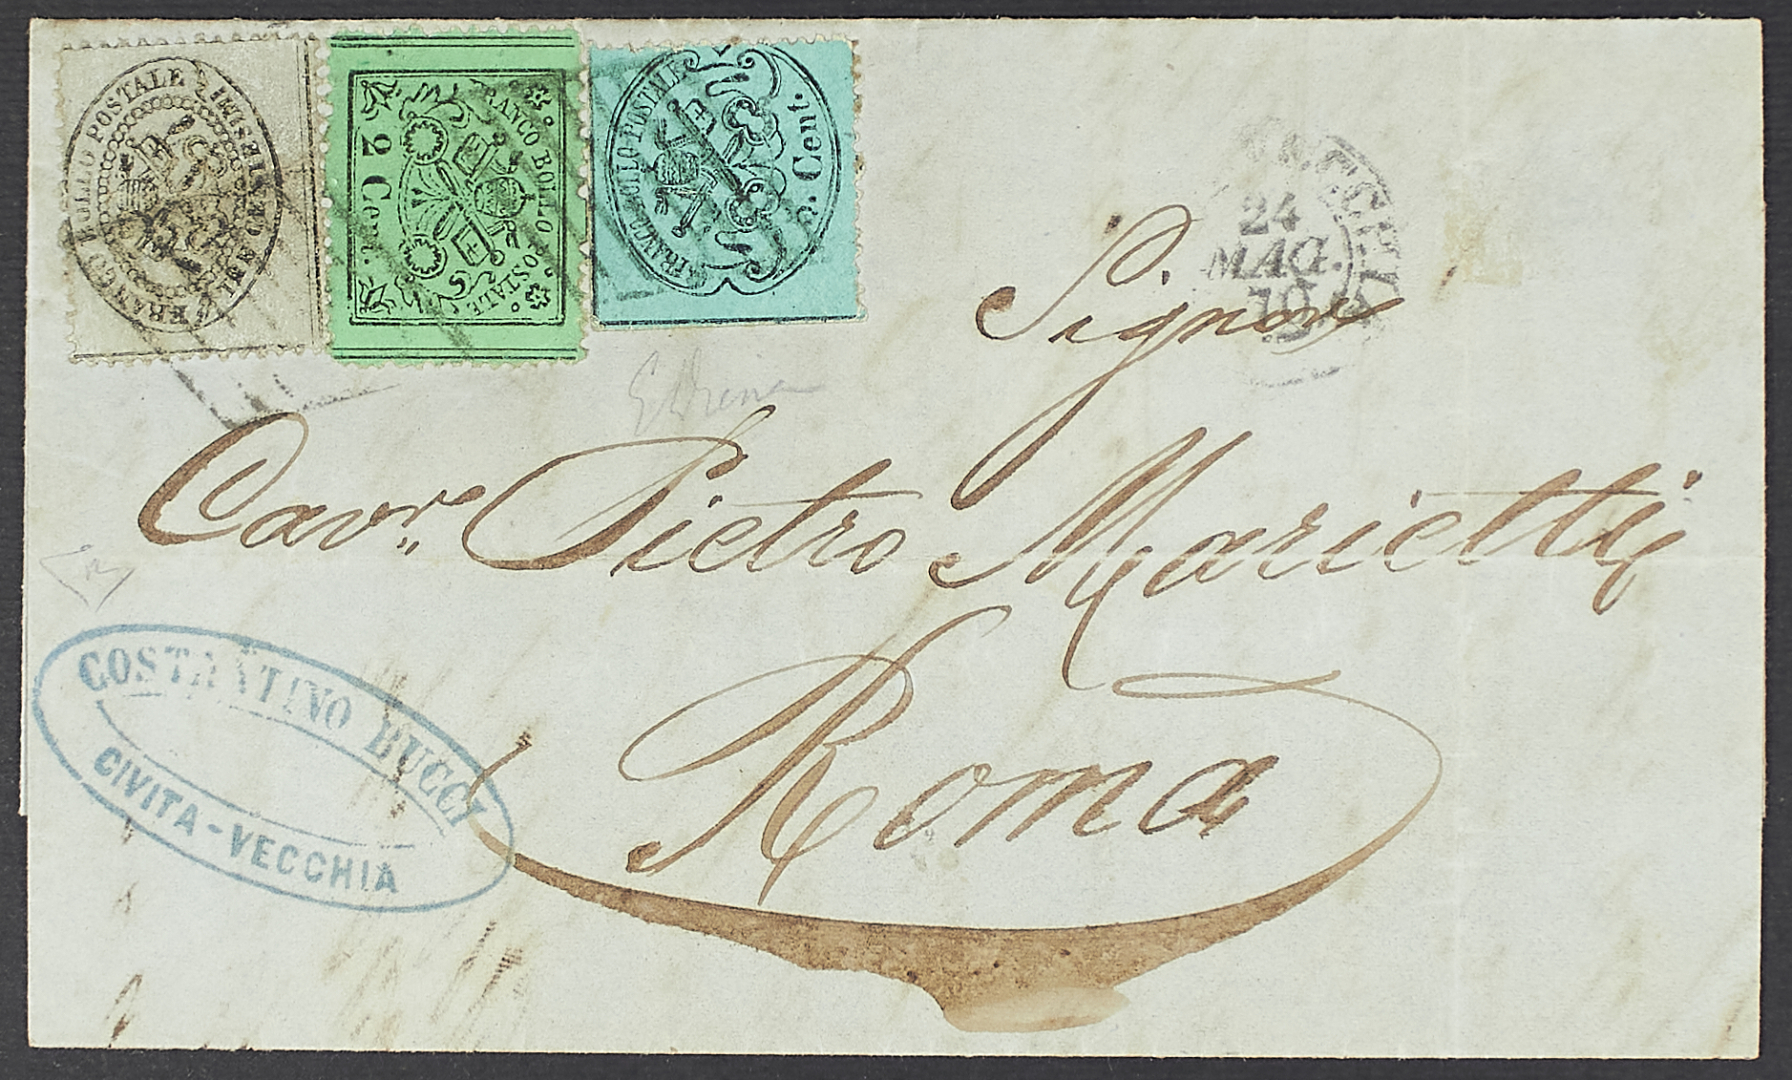 FRANCO BOLLO POSTALE
FRANCO BOLLO POSTALE
2 Cent.
FRANCO BOLLO POSTALE
5. Cent.
24
MAG.
70
Signor
Cav.r Pietro Marietti
Roma
COSTANTINO BUCCI
CIVITA-VECCHIA